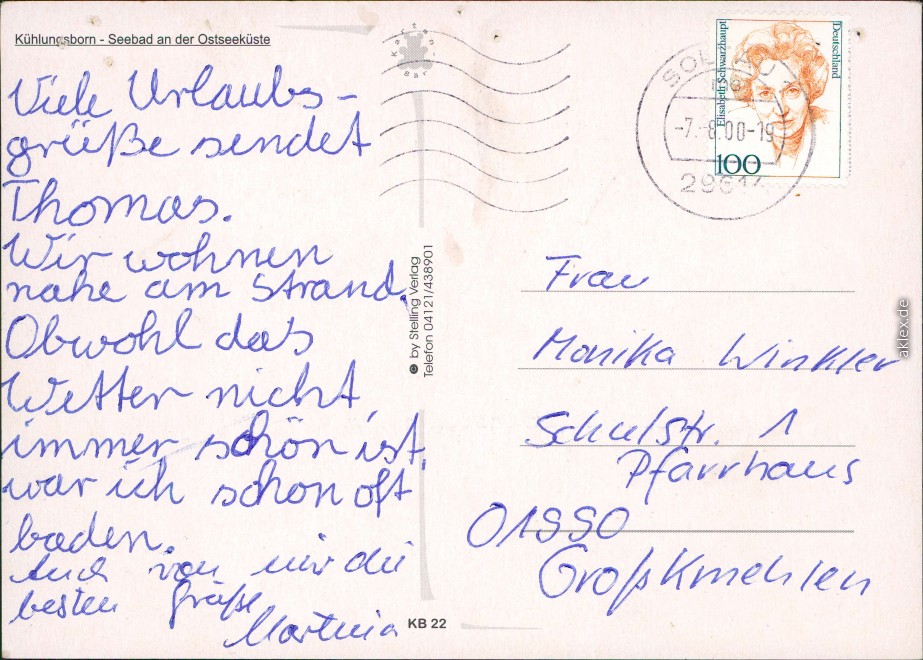 Kühlungsborn - Seebad an der Ostseeküste
Viele Urlaubs-
grüße sendet
Thomas.
Wir wohnen
nahe am Strand.
Obwohl das
Wetter nicht
immer schön ist,
war ich schon oft
baden.
Auch von mir die
besten Grüße
Martina
KB 22
Bild
Karte
by Stelling Verlag
Telefon 04121/438901
Elisabeth Schwarzhaupt
Deutschland
100
SOLTAU
-7.-8.00-19
29614
Frau
Monika Winkler
Schulstr. 1
Pfarrhaus
01990
Großkmehlen
aklex.de